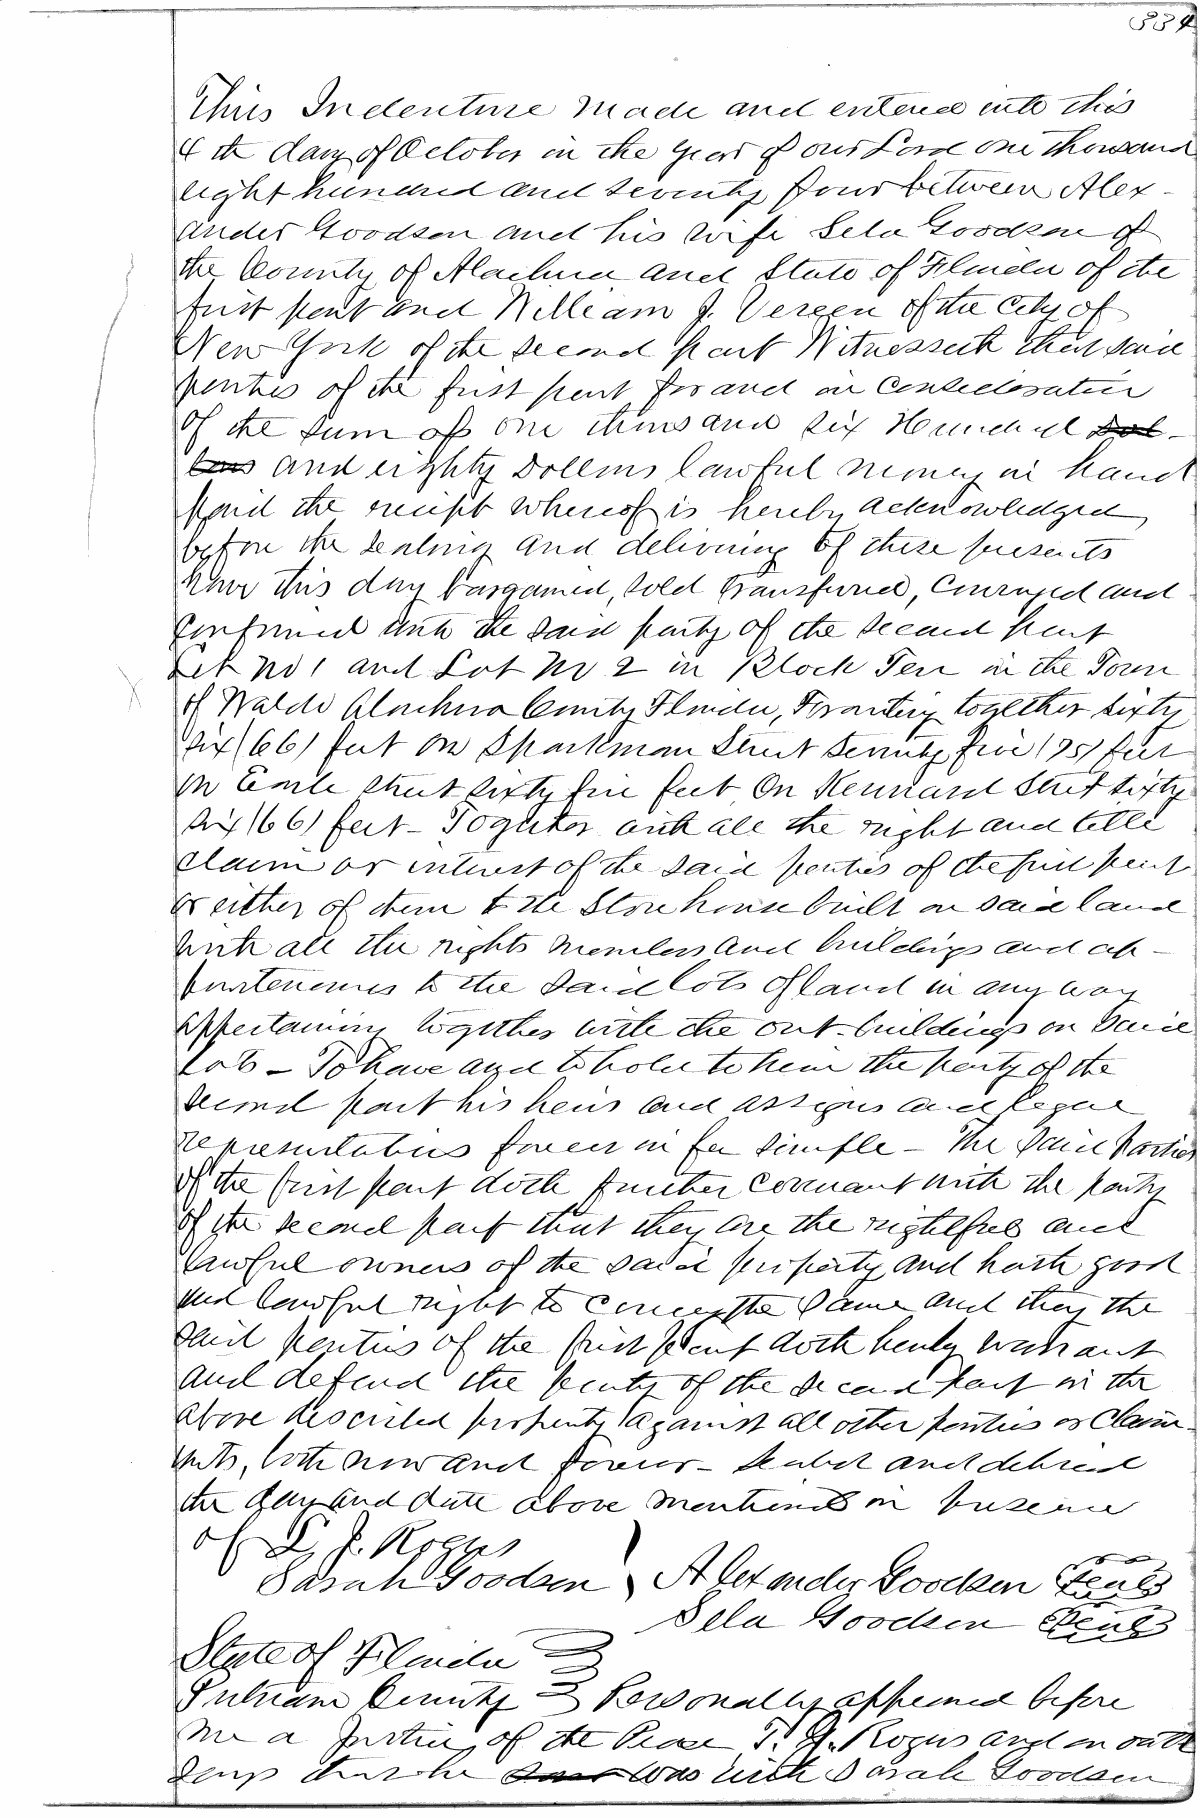 334
This Indenture made and entered into this
4th day of October in the year of our Lord one thousand
eight hundred and seventy four between Alex-
ander Goodson and his wife Sela Goodson of
the County of Alachua and State of Florida of the
first part and William J. Vereen of the City of
New York of the second part Witnesseth that said
parties of the first part for and in consideration
of the sum of one thousand six Hundred Dol-
lars and eighty Dollars lawful money in hand
paid the reciept whereof is hereby acknowledged
before the sealing and delivering of these presents
have this day bargained, sold transfered, conveyed and
confirmed unto the said party of the second part
Lot No 1 and Lot No 2 in Block Ten in the Town
of Waldo Alachua County Florida, Fronting together sixty
six (66) feet on Sparkman Street seventy five (75) feet
on Earle street sixty five feet On Kennard Street sixty
six (66) feet - Together with all the right and title
claim or interest of the said parties of the first part
or either of them to the Store house built on said land
with all the rights members and buildings and ap-
purtenances to the said lots of land in any way
appertaining together with the out-buildings on said
lots - To have and to hold to him the party of the
second part his heirs and assigns and legal
representatives forever in fee simple - The said Parties
of the first part doth further covenant with the party
of the second part that they are the rightful and
lawful owners of the said property and hath good
and lawful right to convey the same and they the
said parties of the first part doth hereby warrant
and defend the party of the second part in the
above described property against all other parties or claim-
ants, both now and forever - Sealed and delivered
the day and date above mentioned in presence
of L. J. Rogers
Sarah Goodson } Alexander Goodson Seal
Sela Goodson Seal
State of Florida }
Putnam County } Personally appeared before
me a Justice of the Peace, T. J. Rogers and on oath
says that he was with Sarah Goodson